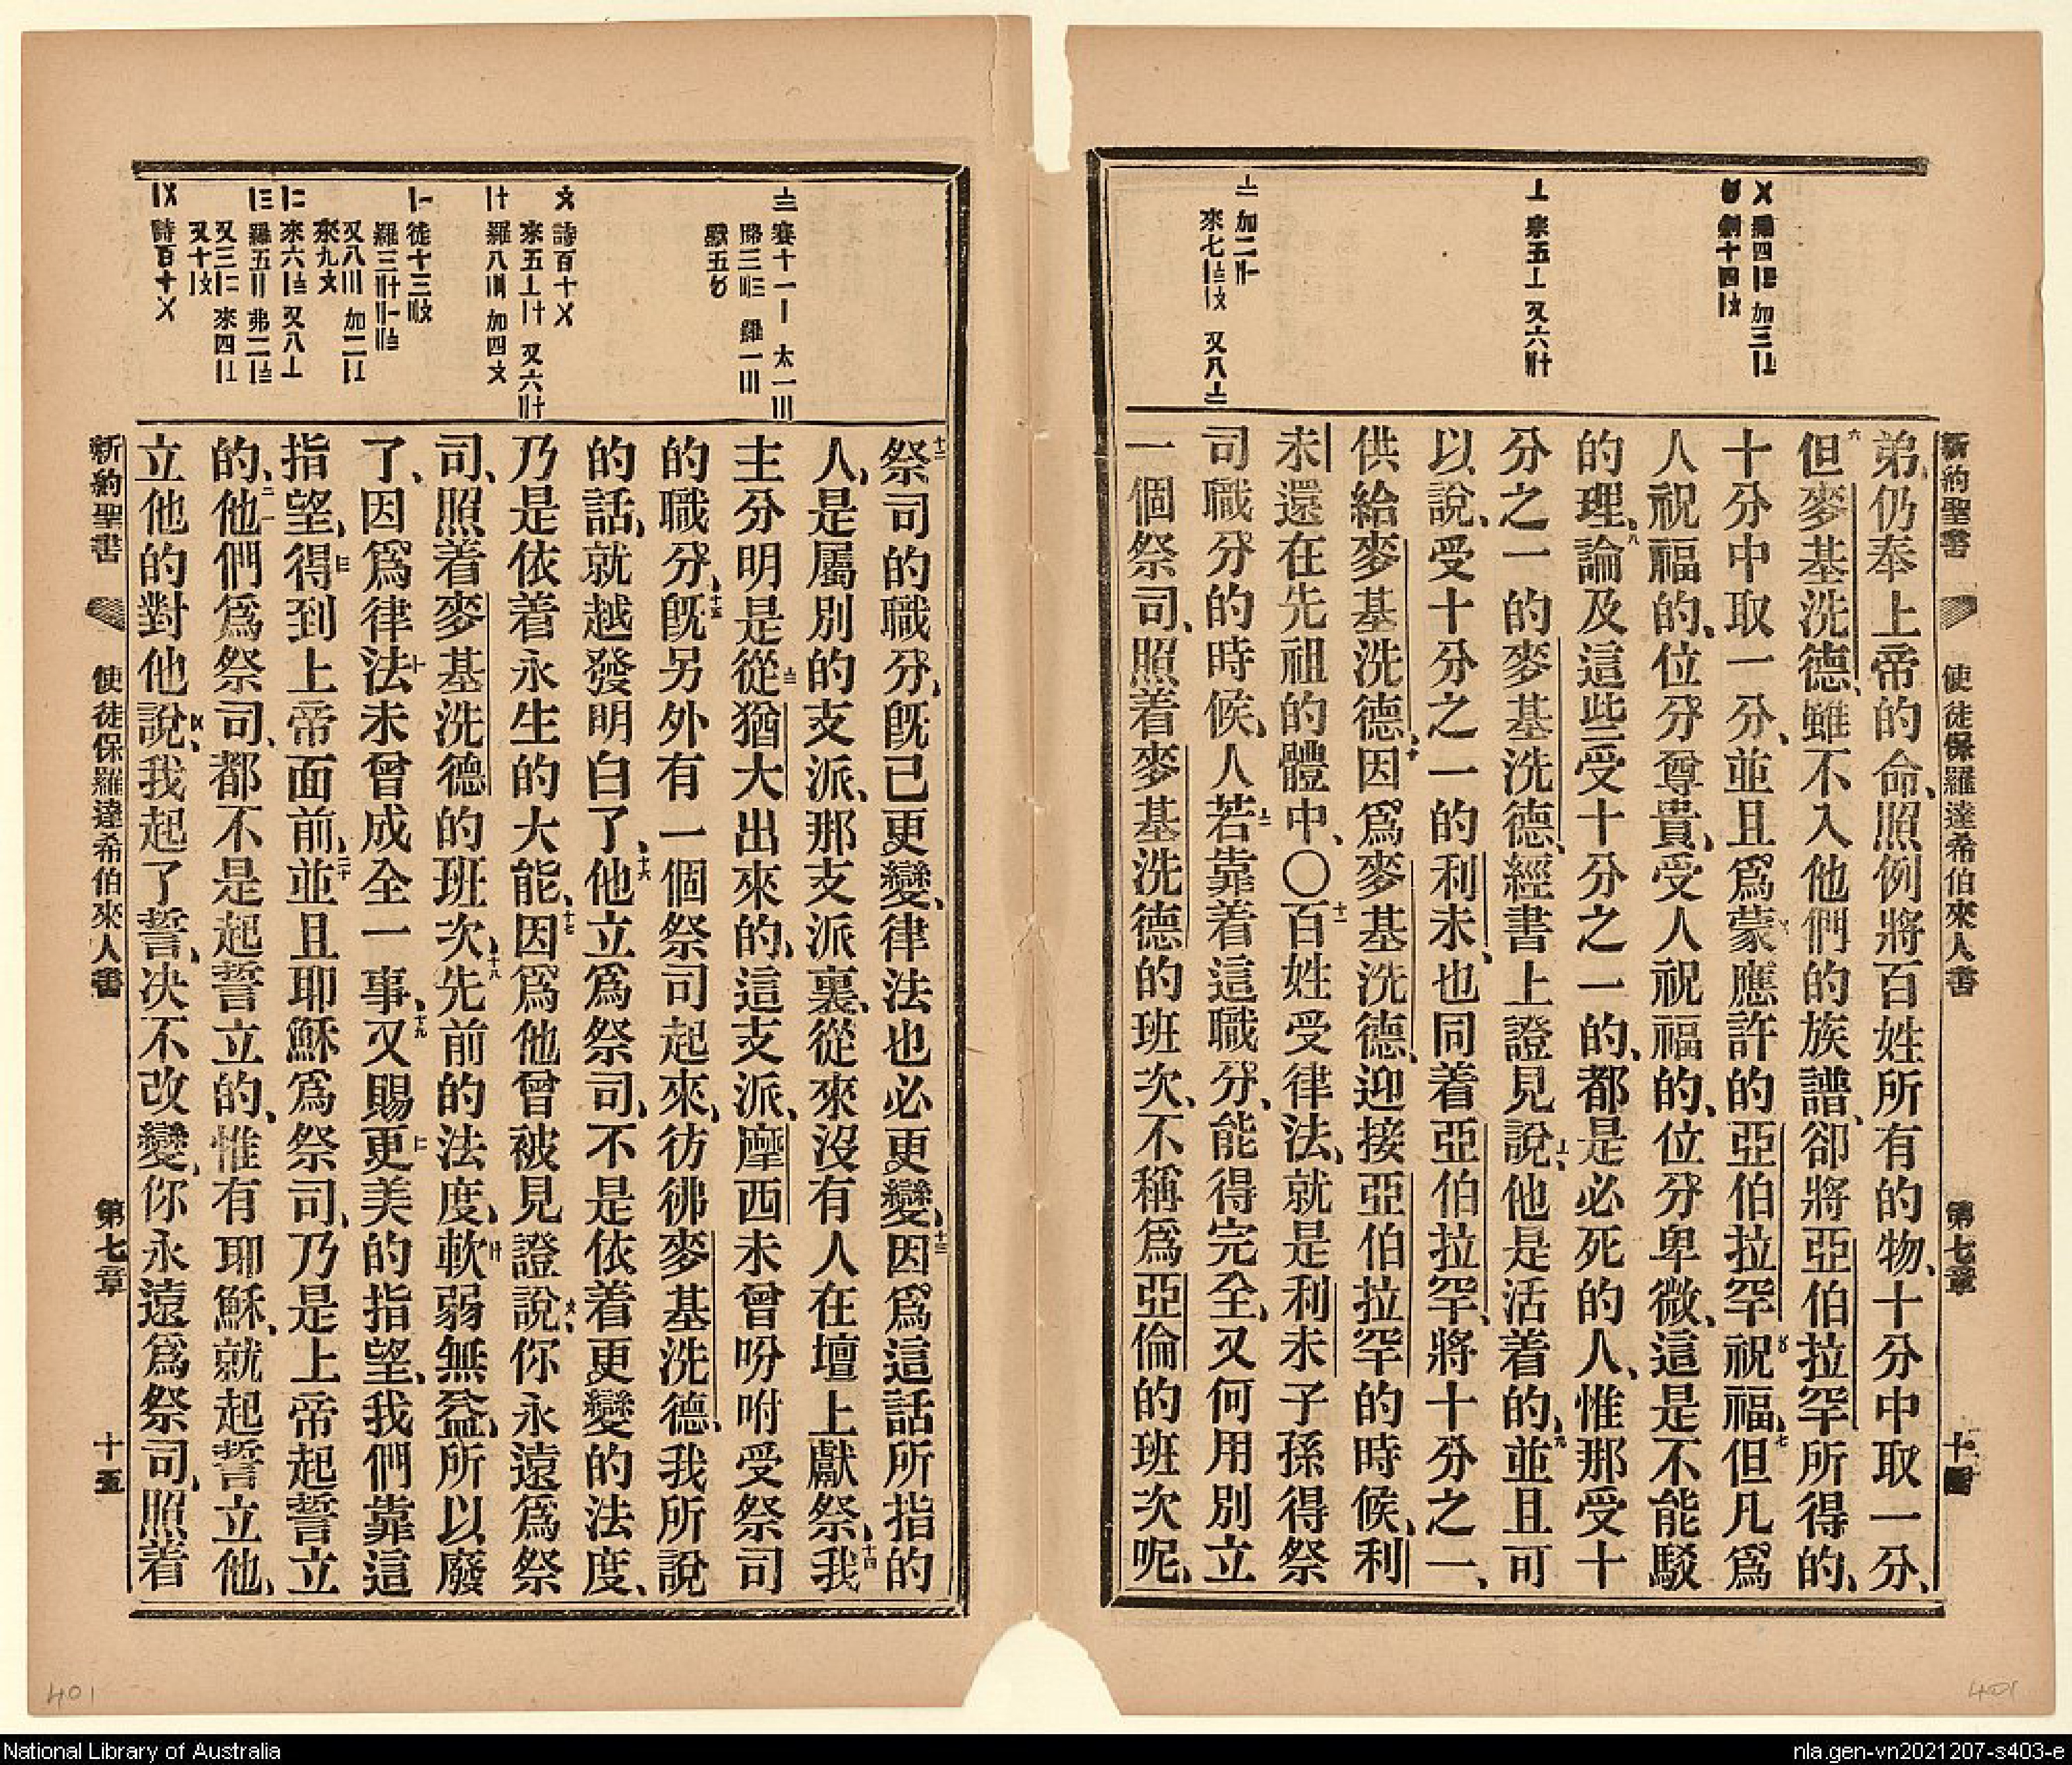 新約聖書 使徒保羅達希伯來人書 第七章 十四
加二
來七 又八
弟、仍奉上帝的命、照例將百姓所有的物、十分中取一分、
六但麥基洗德、雖不入他們的族譜、卻將亞伯拉罕所得的、
十分中取一分、並且爲蒙應許的亞伯拉罕祝福、七但凡爲
人祝福的、位分尊貴、受人祝福的、位分卑微、這是不能駁
的理、八論及這些受十分之一的、都是必死的人、惟那受十
分之一的麥基洗德、經書上證見說、他是活着的、九並且可
以說、受十分之一的利未、也同着亞伯拉罕、將十分之一、
供給麥基洗德、十因爲麥基洗德、迎接亞伯拉罕的時候、利
未還在先祖的體中、〇十一百姓受律法、就是利未子孫得祭
司職分的時候、人若靠着這職分、能得完全、又何用別立
一個祭司、照着麥基洗德的班次、不稱爲亞倫的班次呢、
十二祭司的職分、旣已更變、律法也必更變、十三因爲這話所指的
人、是屬別的支派、那支派裏、從來沒有人在壇上獻祭、十四我
主分明是從猶大出來的、這支派、摩西未曾吩咐受祭司
的職分、十五旣另外有一個祭司起來、彷彿麥基洗德、我所說
的話、就越發明白了、十六他立爲祭司、不是依着更變的法度、
乃是依着永生的大能、十七因爲他曾被見證說、你永遠爲祭
司、照着麥基洗德的班次、十八先前的法度、軟弱無益、所以廢
了、因爲律法未曾成全一事、十九又賜更美的指望、我們靠這
指望、得到上帝面前、二十並且耶穌爲祭司、乃是上帝起誓立
的、二一他們爲祭司、都不是起誓立的、惟有耶穌、就起誓立他、
立他的對他說、我起了誓、决不改變、你永遠爲祭司、照着
新約聖書 使徒保羅達希伯來人書 第七章 十五
401
401
National Library of Australia
nla.gen-vn2021207-s403-e